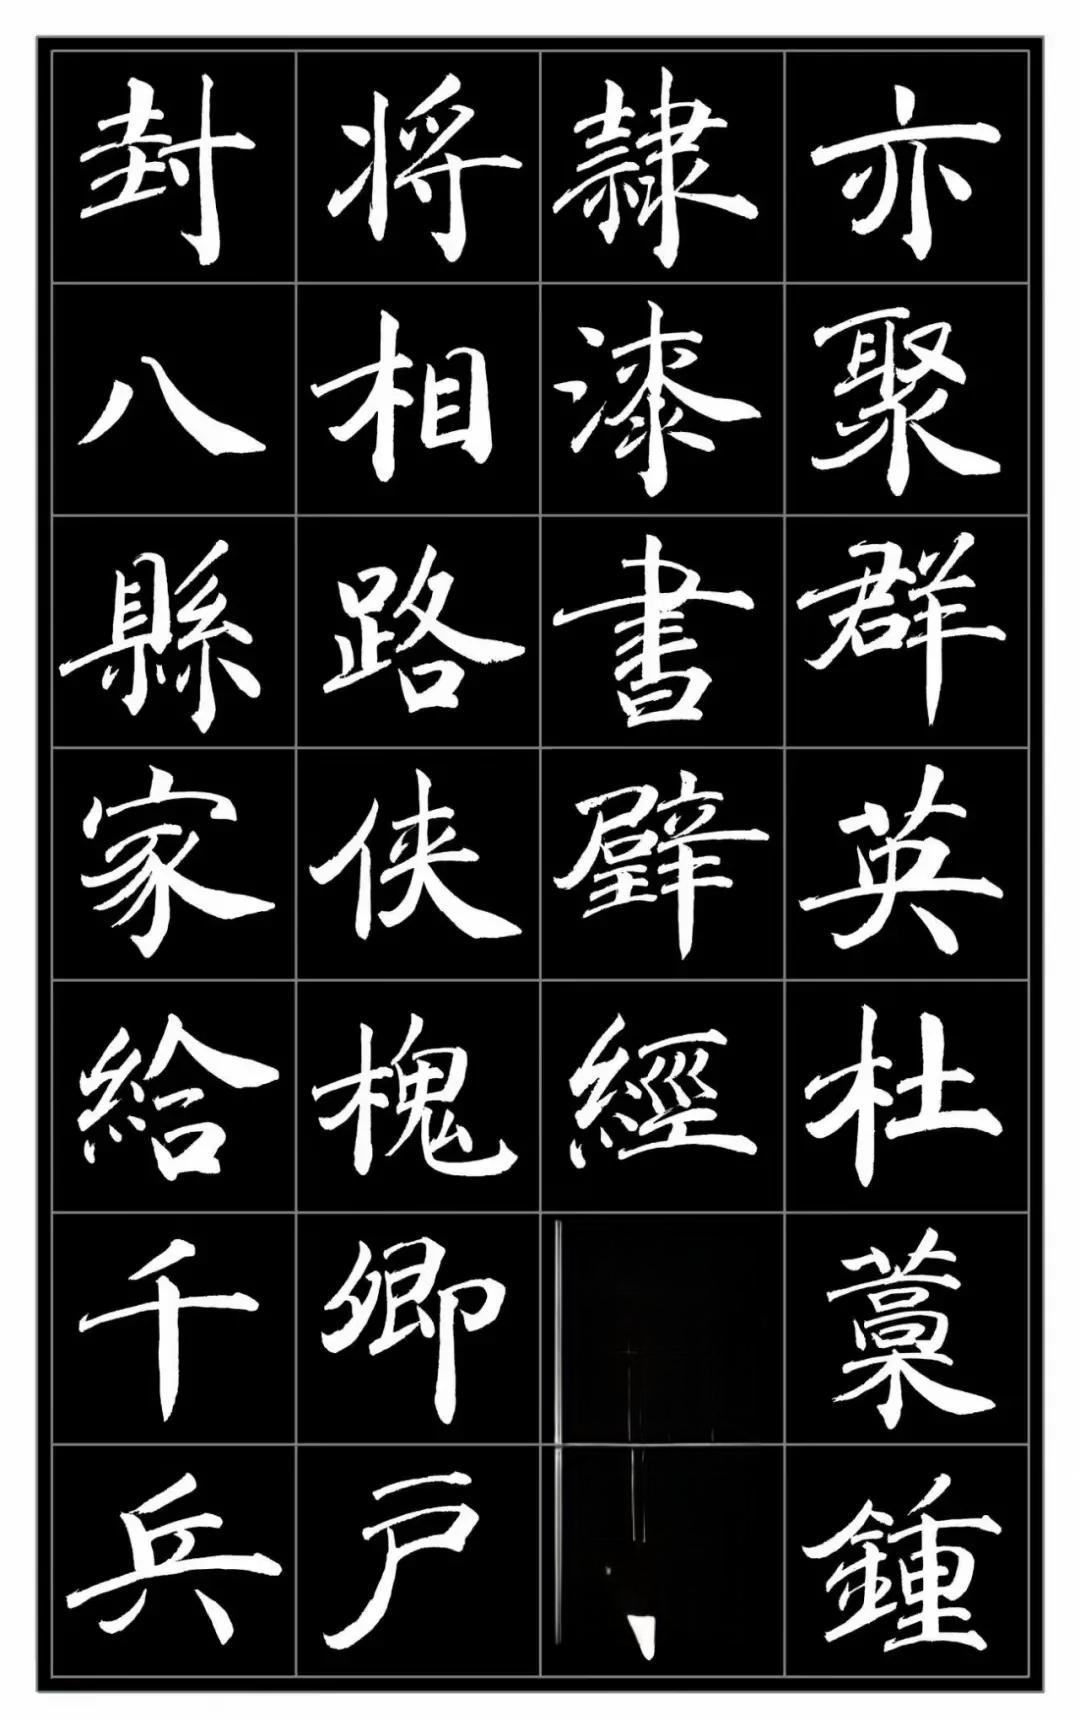 亦聚群英杜藁鍾
隷漆書壁經
将相路侠槐卿戸
封八縣家給千兵